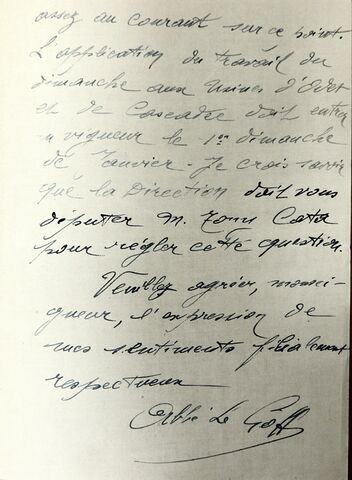 assez au courant sur ce point.
L'application du travail du
dimanche aux Usines d'Odet
et de Cascadec doit entrer
en vigueur le 1er dimanche
de Janvier - Je crois savoir
que la Direction doit vous
députer M. Cota
pour régler cette question.
Veuillez agréer, monsei-
gneur, l'expression de
mes sentiments filialement
respectueux
Abbé Le Goff